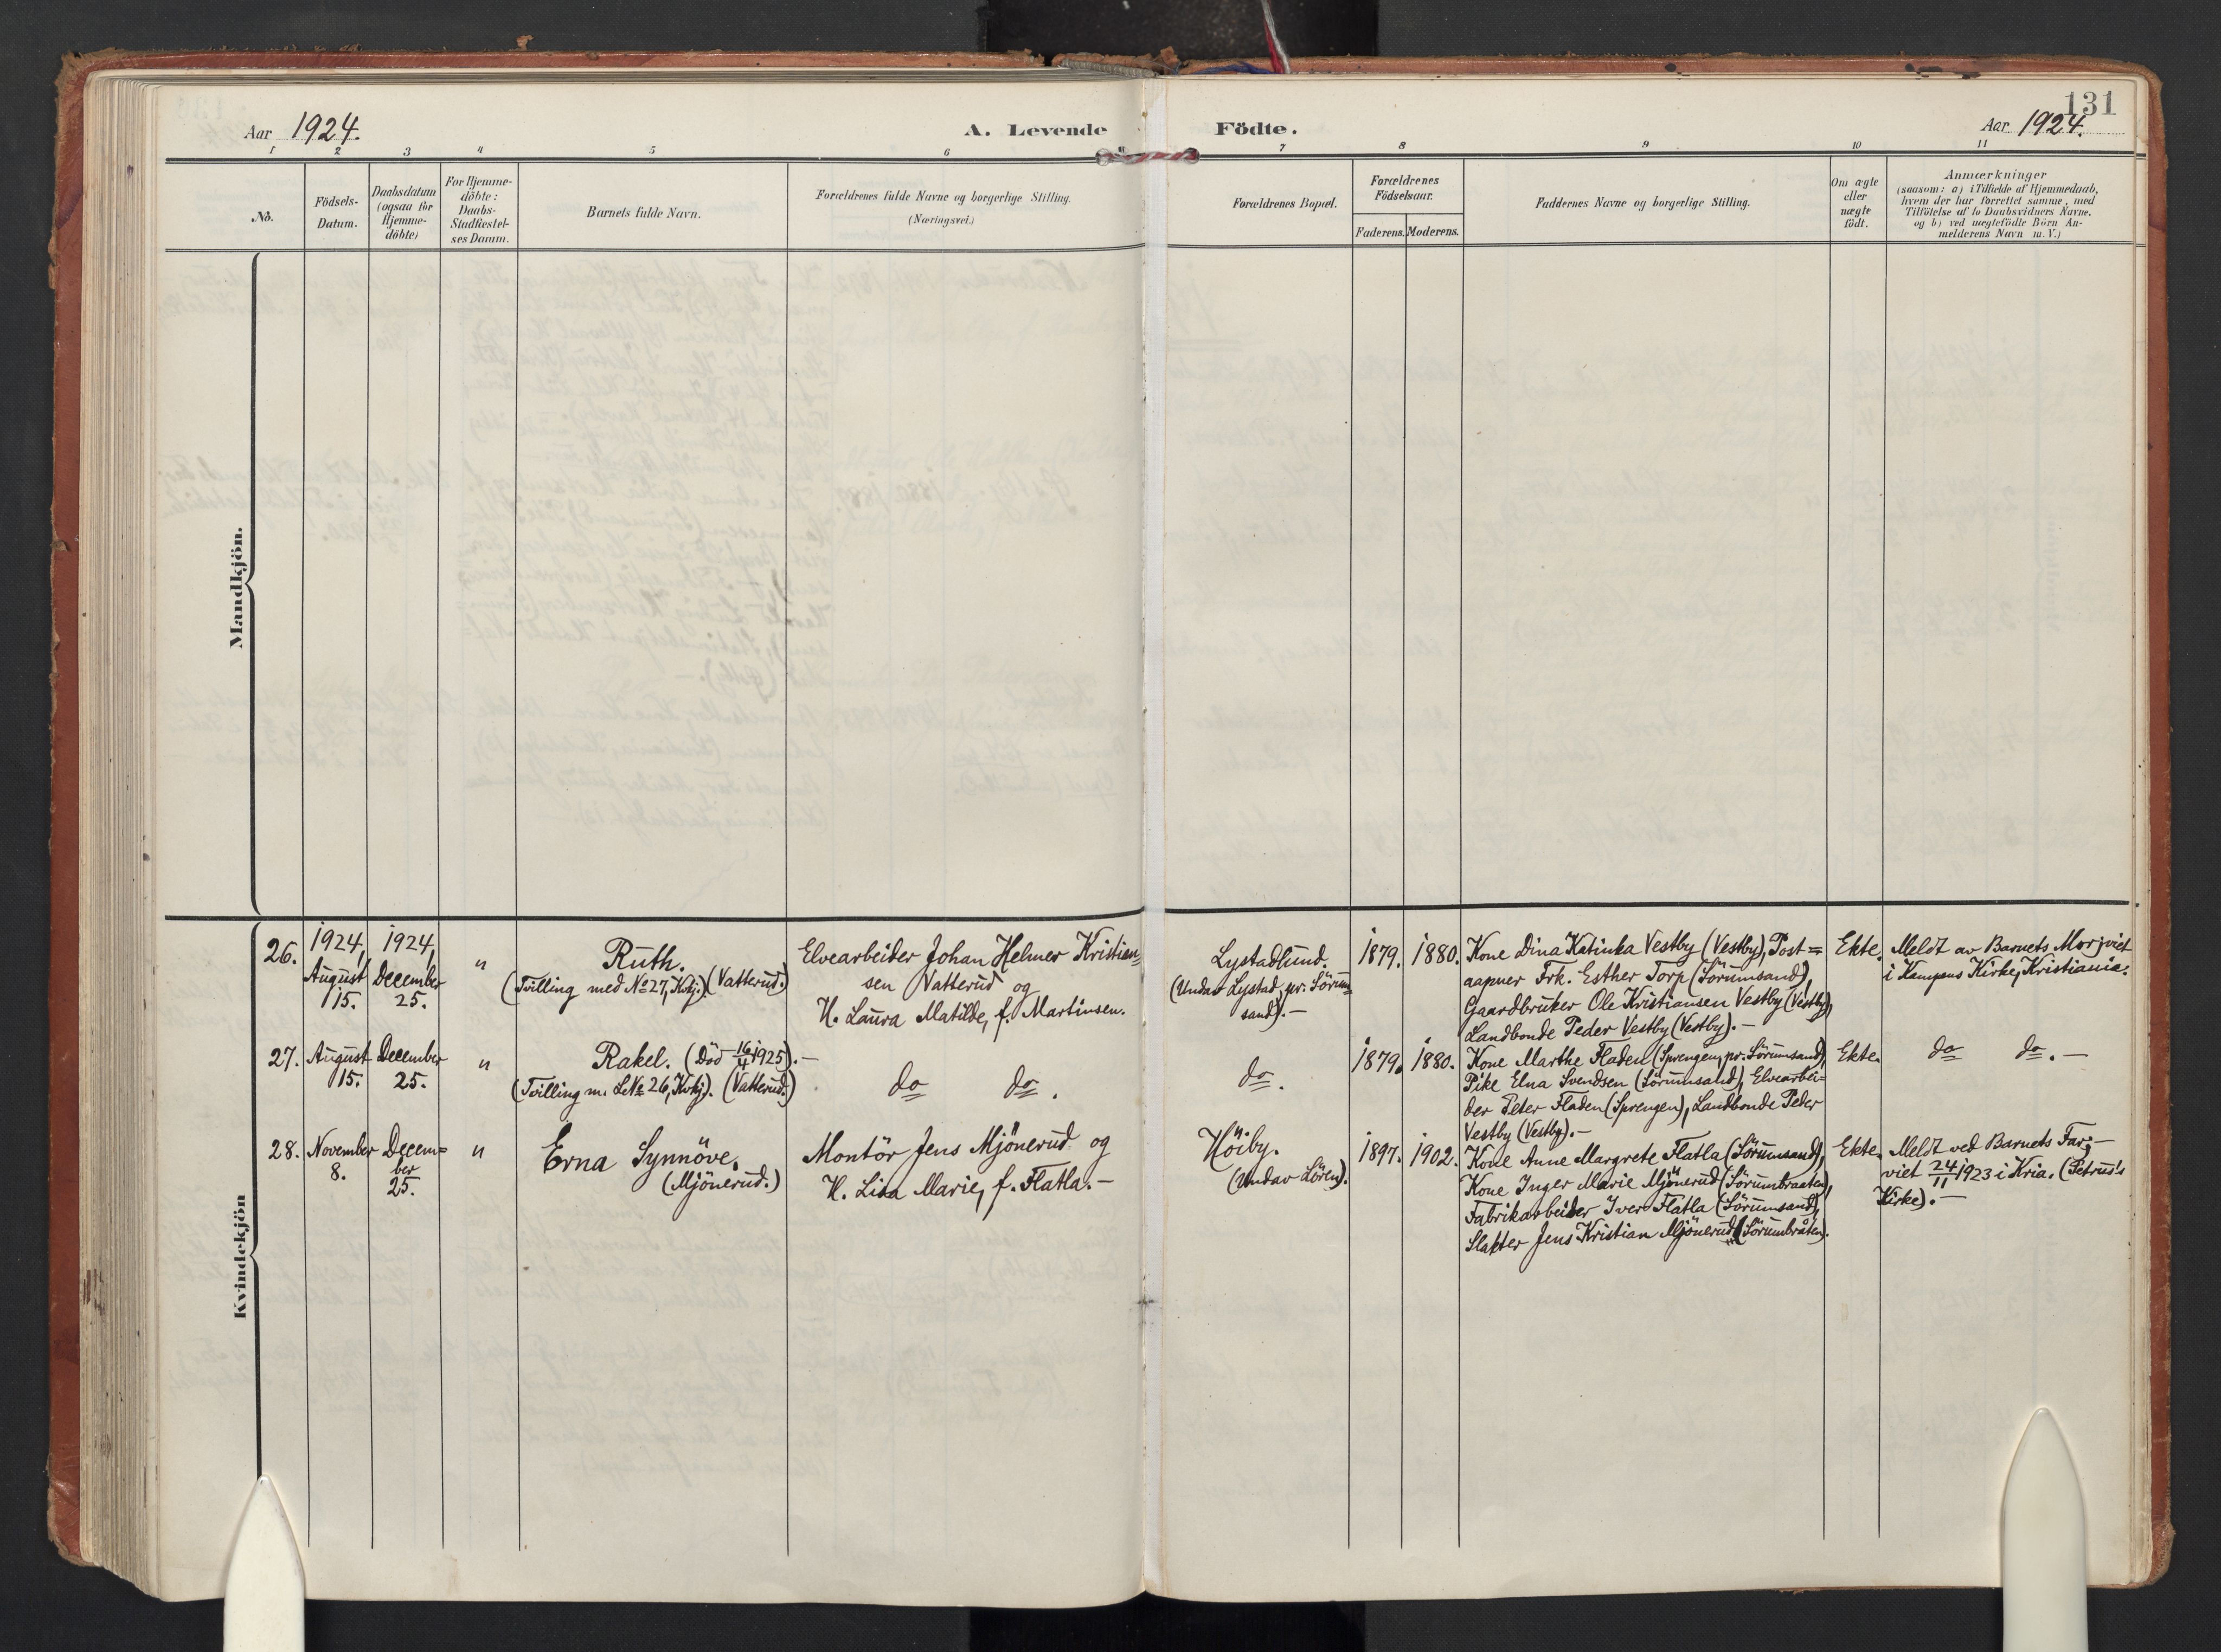 131
Aar 1924.
A. Levende Födte.
Aar 1924.
1 2 3 4 5 6 7 8 9 10 11
No.
Födsels-
Datum.
Daabsdatum
(ogsaa for
Hjemme-
döbte)
For Hjemme-
döbte:
Daabs-
Stadfæstel-
ses Datum.
Barnets fulde Navn.
Forældrenes fulde Navne og borgerlige Stilling.
(Næringsvei.)
Forældrenes Bopæl.
Forældrenes
Födselsaar.
Faderens. Moderens.
Faddernes Navne og borgerlige Stilling.
Om ægte
eller
uægte
födt.
Anmærkninger
(saasom: a) i Tilfælde af Hjemmedaab,
hvem der har forrettet samme, med
Tilföielse af to Daabsvidners Navne.
og b) ved uægtefödte Börn An-
melderens Navn m. V.)
Mandkjön.
Kvindekjön
26.
1924,
August
15.
1924,
December
25.
"
Ruth.
(Tvilling med No 27, Kvkj.) (Vatterud.)
Elvearbeider Johan Helmer Kristian-
sen Vatterud og
H. Laura Matilde, f. Martinsen.
Lystadlund.
(Undar Lystad, pr. Sörum-
sand).—
1879.
1880.
Kone Dina Katinka Vestby (Vestby), Post=
aapner Frk. Esther Torp (Sörumsand),
Gaardbruker Ole Kristiansen Vestby (Vestby),
Landbonde Peder Vestby (Vestby).—
Ekte.
Meldt av Barnets Mor; viet
i Kampens Kirke, Kristiania.
27.
August
15.
December
25.
"
Rakel. (Död 16/4 1925).—
(Tvilling m. L№ 26, Kvkj). (Vatterud.)
do do.
do.
1879.
1880.
Kone Marthe Fladen (Sprengen, pr. Sörumsand),
Pike Elna Svendsen (Sörumsand), Elvearbei=
der Peter Fladen (Sprengen), Landbonde Peder
Vestby (Vestby).—
Ekte.
do do.—
28.
November
8.
Decem=
ber
25.
"
Erna Synnöve.
(Mjönerud.)
Montör Jens Mjönerud og
H. Lisa Marie, f. Flatla.—
Höiby.
(Undar Lören).
1897.
1902.
Kone Anne Margrete Flatla (Sörumsand),
Kone Inger Marie Mjönerud (Sörumbraaten),
Fabrikarbeider Iver Flatla (Sörumsand),
Slakter Jens Kristian Mjönerud (Sörumbråten).
Ekte.
Meldt ved Barnets Far;—
viet 24/11 1923 i Kria. (Petrus's
Kirke).—